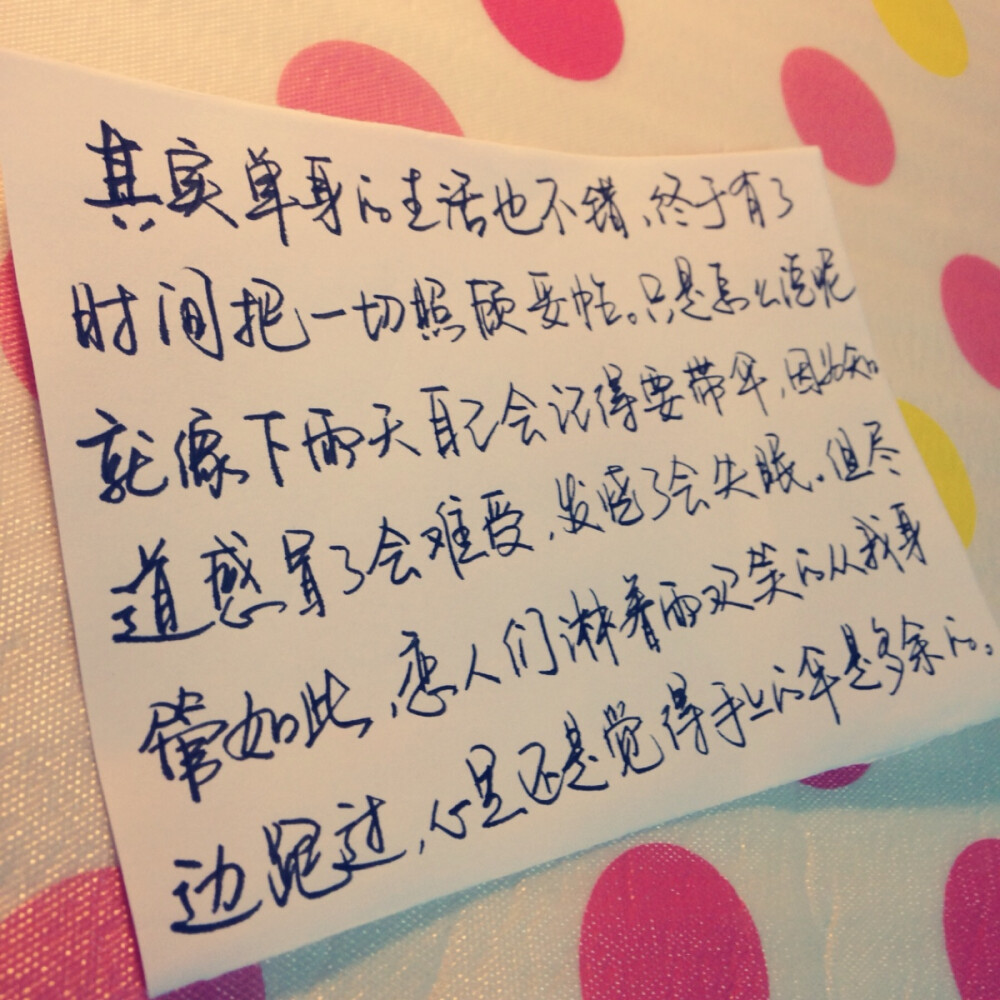 其实单身的生活也不错，终于有了
时间把一切照顾妥帖。只是怎么说呢
就像下雨天自己会记得要带伞，因为知
道感冒了会难受，发烧了会失眠。但尽
管如此，恋人们淋着雨欢笑的从我身
边跑过，心里还是觉得手上的伞是多余的。